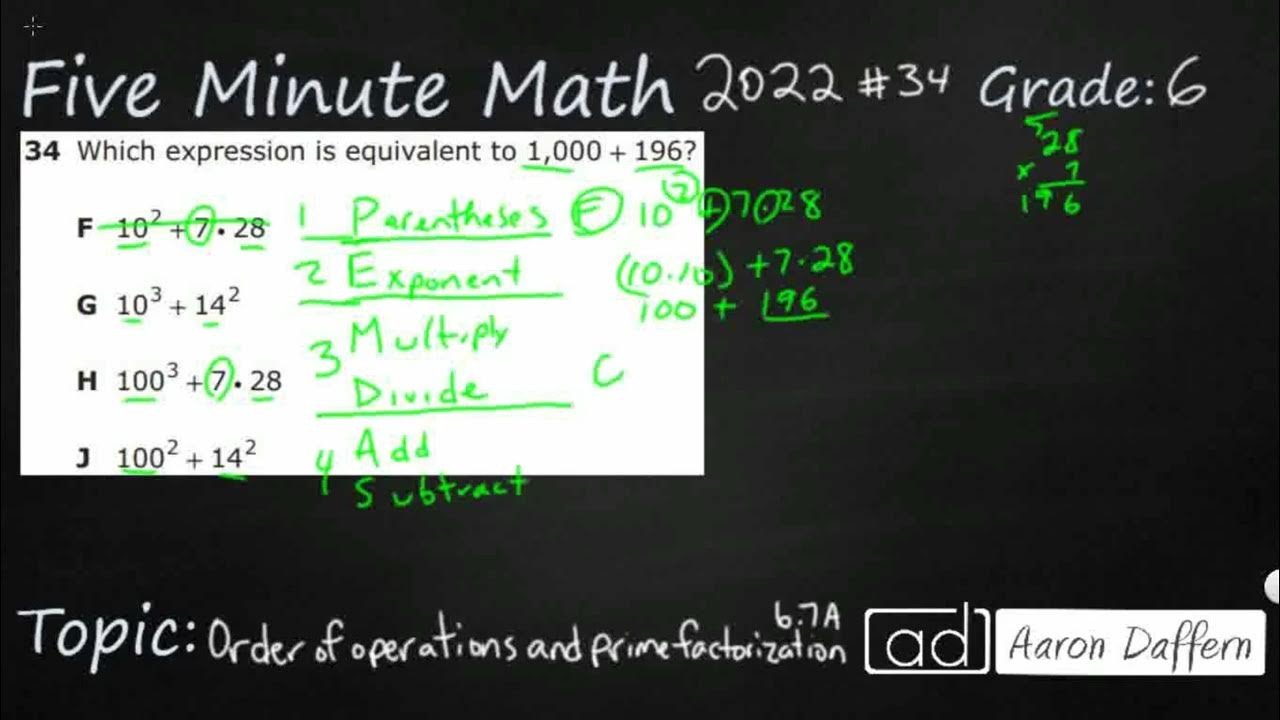 Five Minute Math 2022 #34 Grade: 6
34 Which expression is equivalent to 1,000 + 196?
F 10² + 7 • 28
G 10³ + 14²
H 100³ + 7 • 28
J 100² + 14²
1 Parentheses
2 Exponent
3 Multiply
Divide
4 Add
Subtract
F 10² + 7·28
(10·10) + 7·28
100 + 196
C
5
28
x 7
196
Topic: Order of operations and prime factorization
6.7A
ad Aaron Daffern